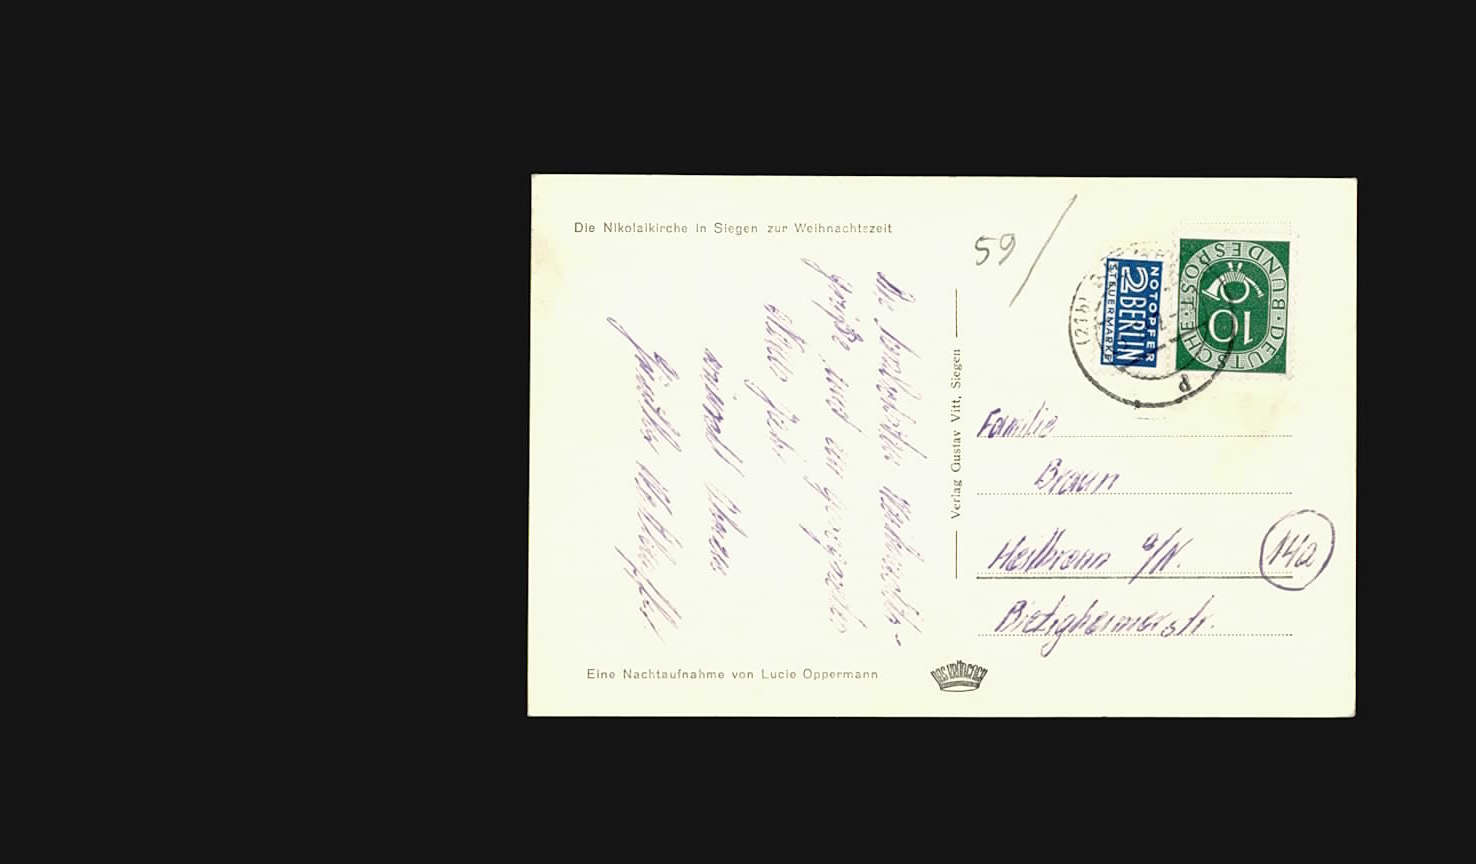 Die Nikolaikirche in Siegen zur Weihnachtszeit
59/
Die herzlichsten Weihnachts-
grüße und ein gesegnetes
Neues Jahr
Eine Nachtaufnahme von Lucie Oppermann
Verlag Gustav Vitt, Siegen
NOTOPFER
2 BERLIN
STEUERMARKE
DEUTSCHE BUNDESPOST
10
(21b)
Familie
Braun
Heilbronn a/N.
14a
Bietigheimerstr.